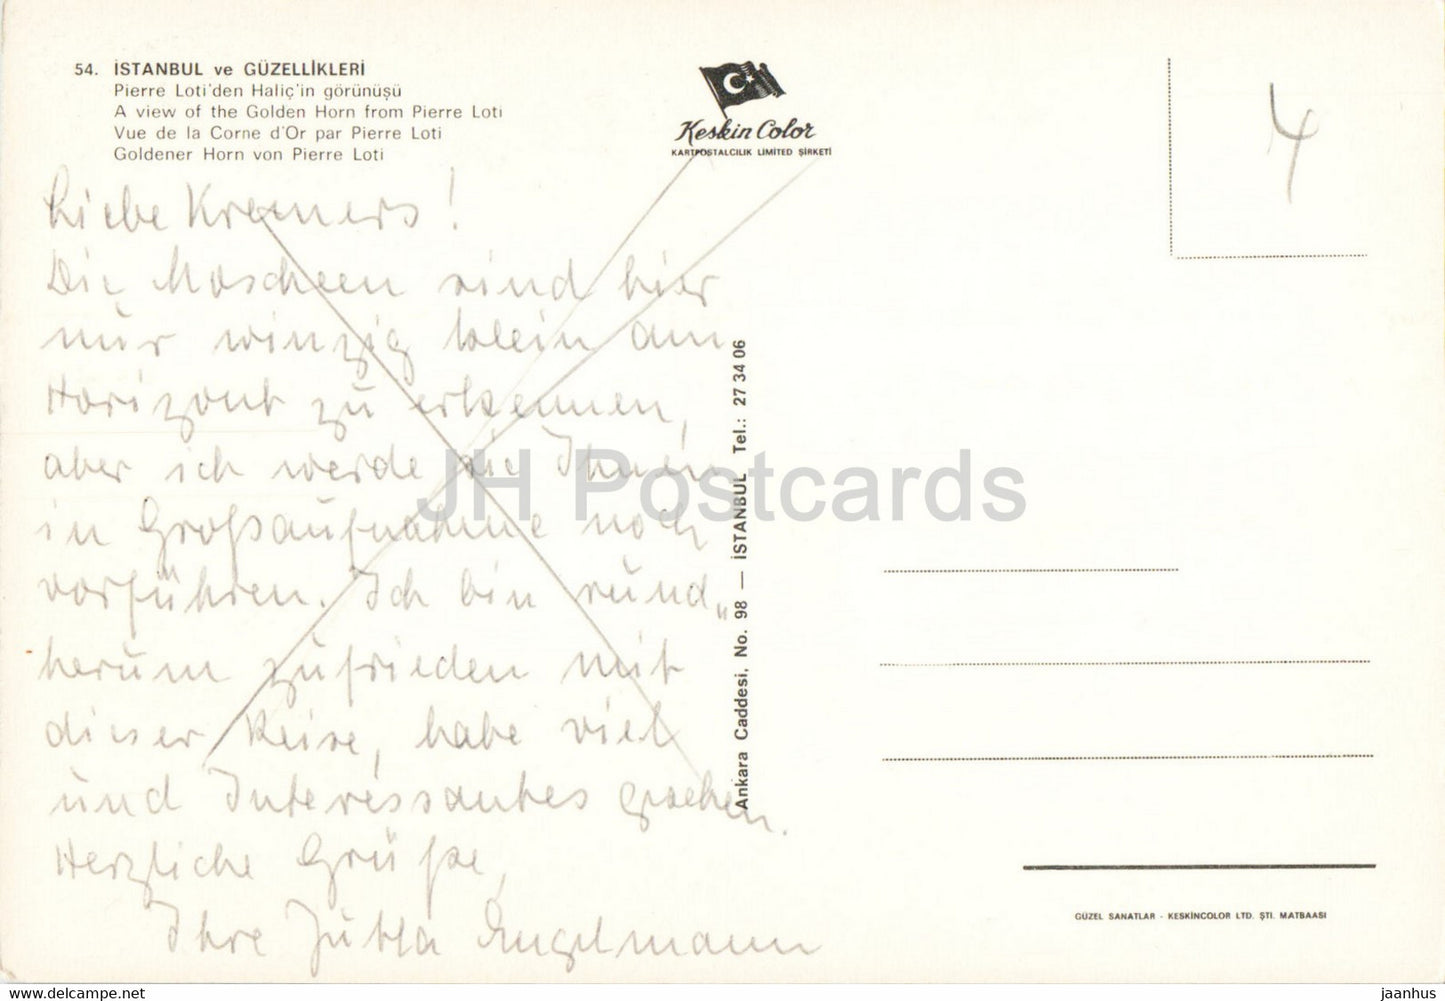 54. İSTANBUL ve GÜZELLİKLERİ
Pierre Loti'den Haliç'in görünüşü
A view of the Golden Horn from Pierre Loti
Vue de la Corne d'Or par Pierre Loti
Goldener Horn von Pierre Loti
Keskin Color
KARTPOSTALCILIK LIMITED ŞİRKETİ
4
Liebe Kremers!
Die Moscheen sind hier
nur winzig klein am
Horizont zu erkennen,
aber ich werde sie Ihnen
in Großaufnahme noch
vorführen. Ich bin rund„
herum zufrieden mit
dieser Reise, habe viel
und Interessantes gesehen.
Herzliche Grüße,
Ihre Jutta Engelmann
Ankara Caddesi, No. 98 — İSTANBUL Tel.: 27 34 06
JH Postcards
GÜZEL SANATLAR - KESKİNCOLOR LTD. ŞTİ. MATBAASI
www.delcampe.net
jaanhus